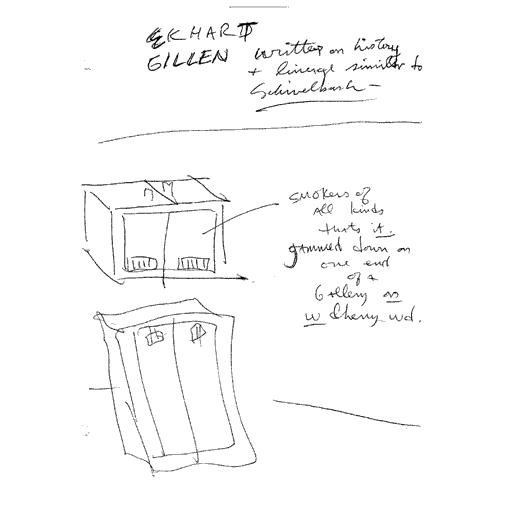 ECKHART
GILLEN
Written on history
+ lineage similar to
Schivelbusch –
smokers of
all kinds
thats it.
jammed down on
one end
of a
Gallery on
w Cherry wd.